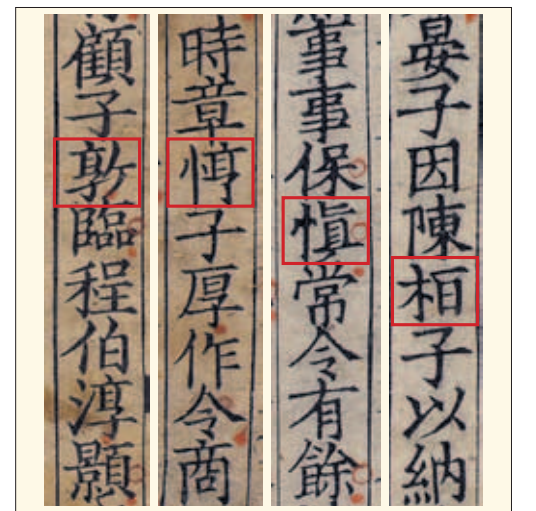 晏子因陳桓子以納
事事保慎常令有餘
時章惇子厚作令商
顧子敦臨程伯淳顥